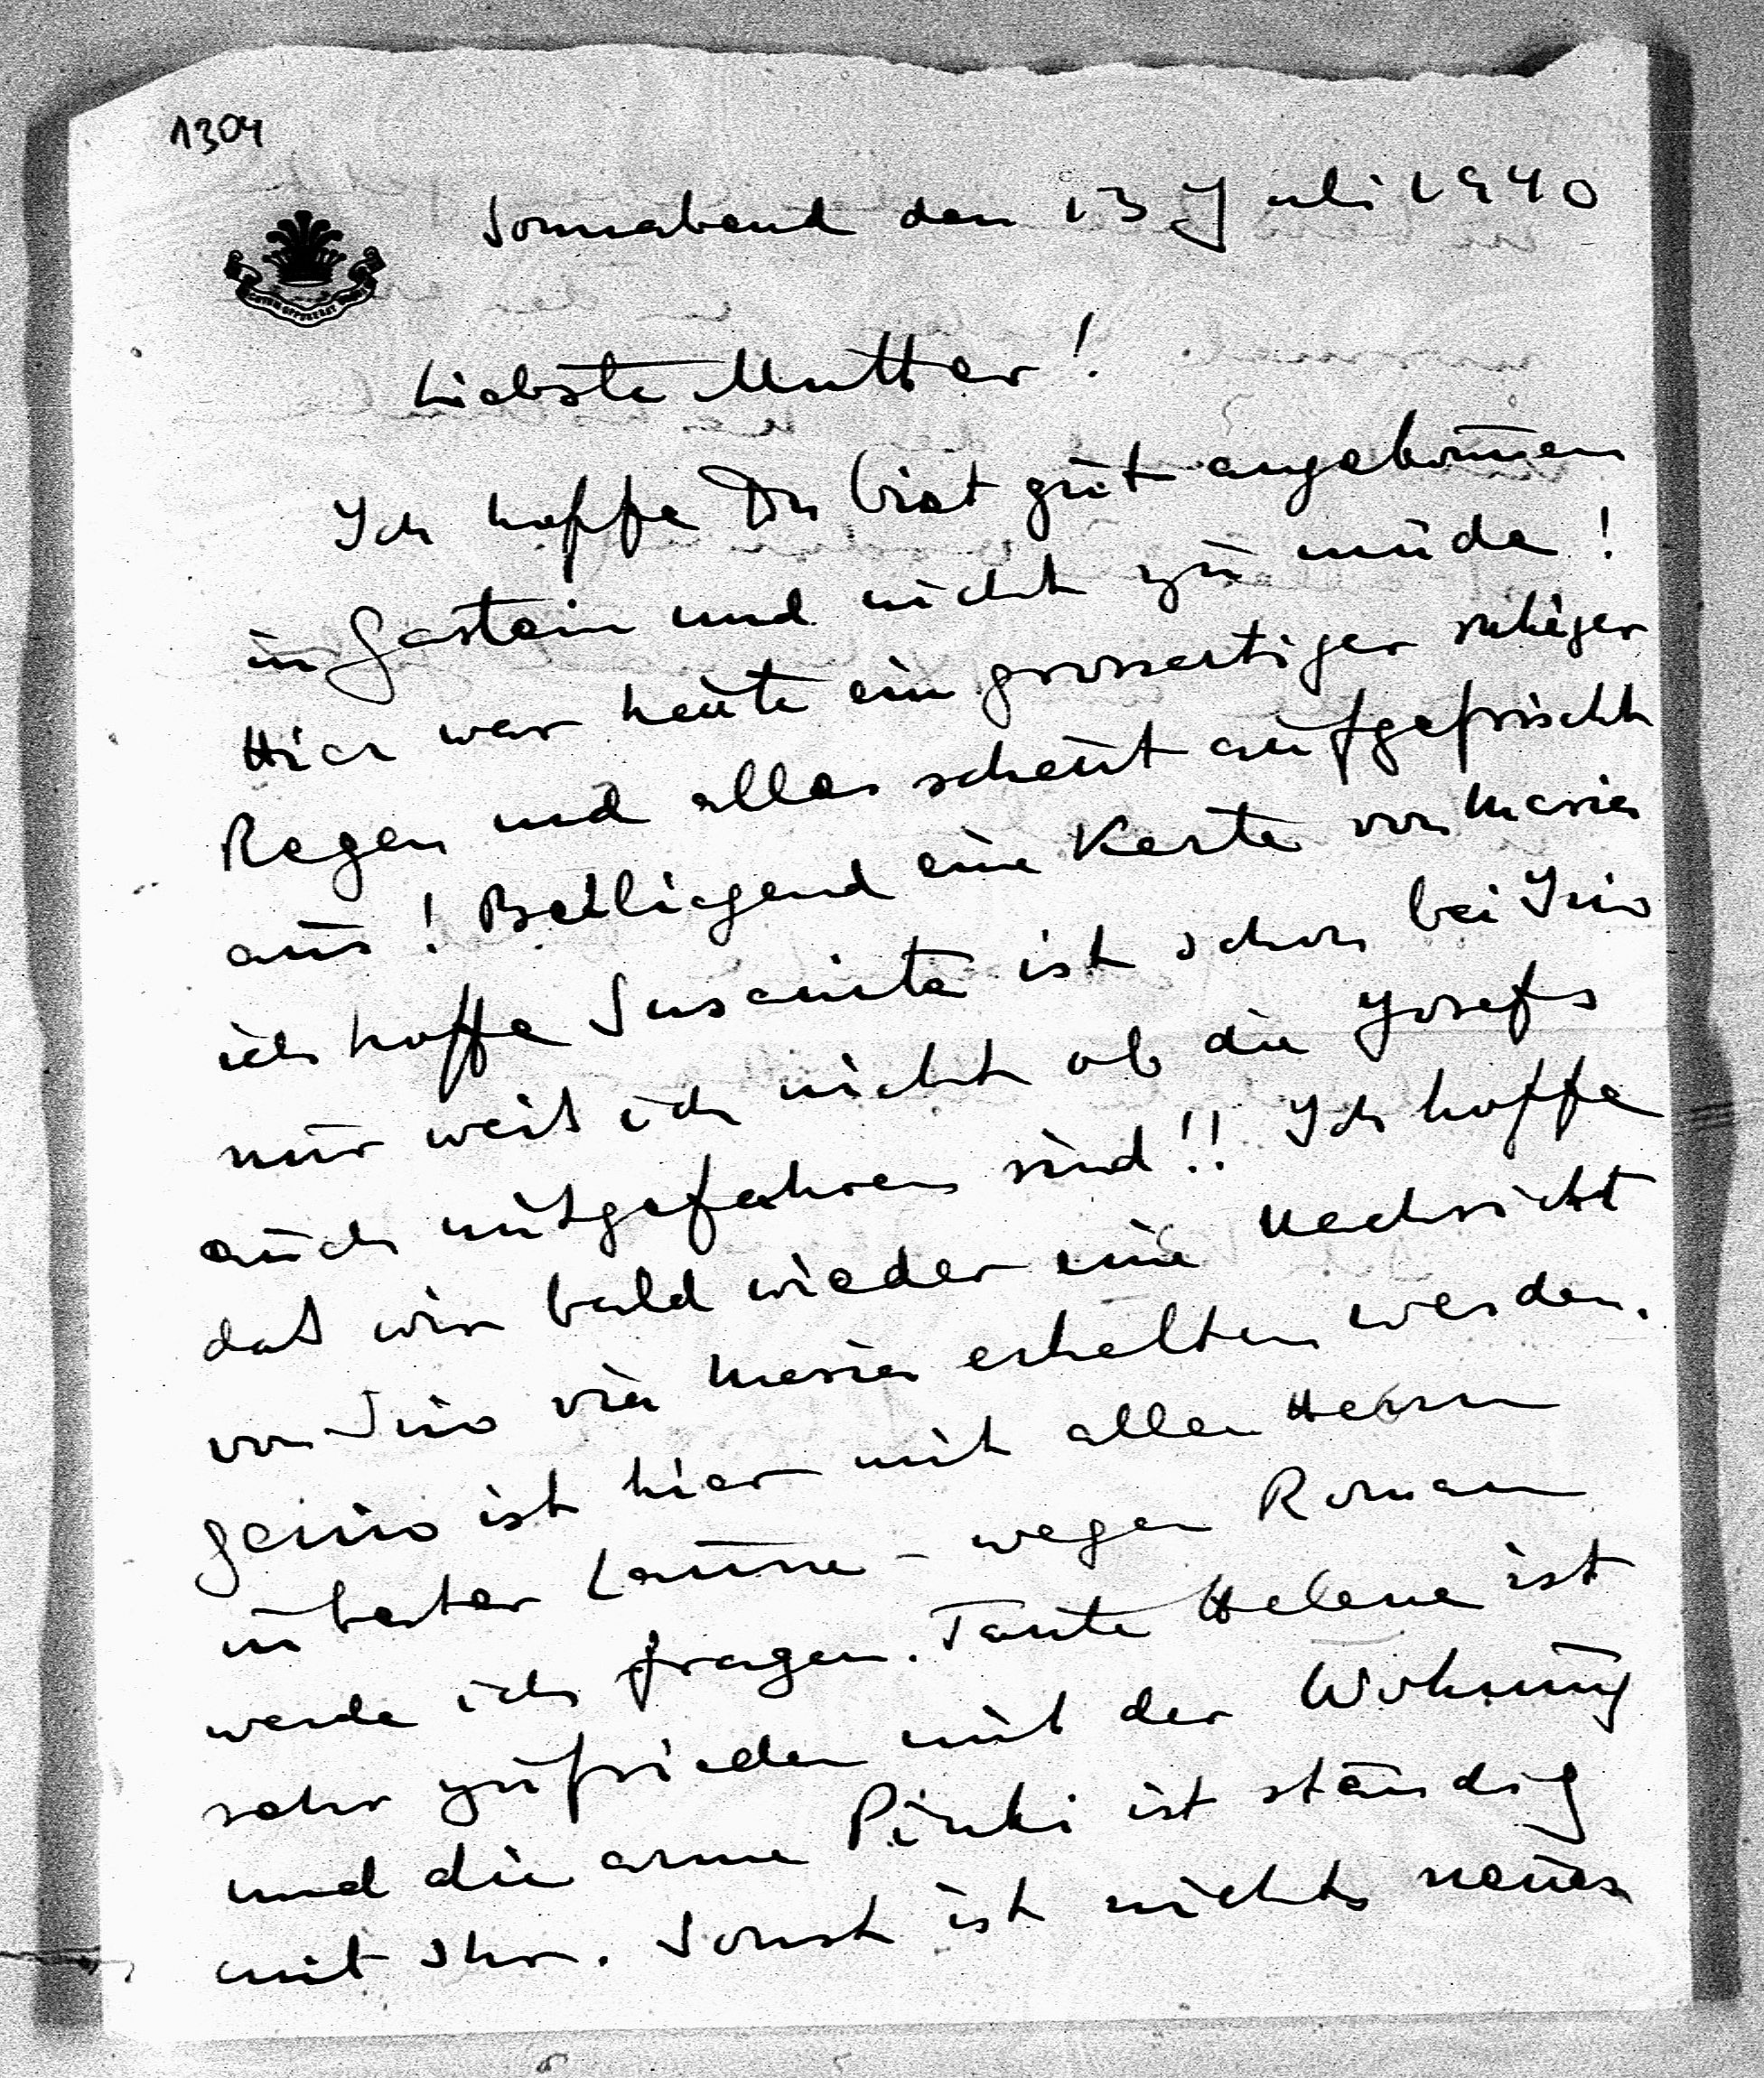 1304
Sonnabend den 13 Juli 1940
Liebste Mutter!
Ich hoffe Du bist gut angekom̄en
in Gastein und nicht zu müde!
Hier war heute ein grossartiger ruhiger
Regen und alles scheint aufgefrischt
aus! Beiliegend eine Karte von Maria
ich hoffe Susanita ist schon bei Ino
nur weis ich nicht ob die Josefs
auch mitgefahren sind!! Ich hoffe
das wir bald wieder eine Nachricht
von Ino via Maria erhalten werden.
ist hier mit allen Herrn
in bester Laune – wegen Roman
werde ich fragen. Tante Helene ist
sehr zufrieden mit der Wohnung
und die arme Pinki ist ständig
mit Ihr. Sonst ist nichts neues